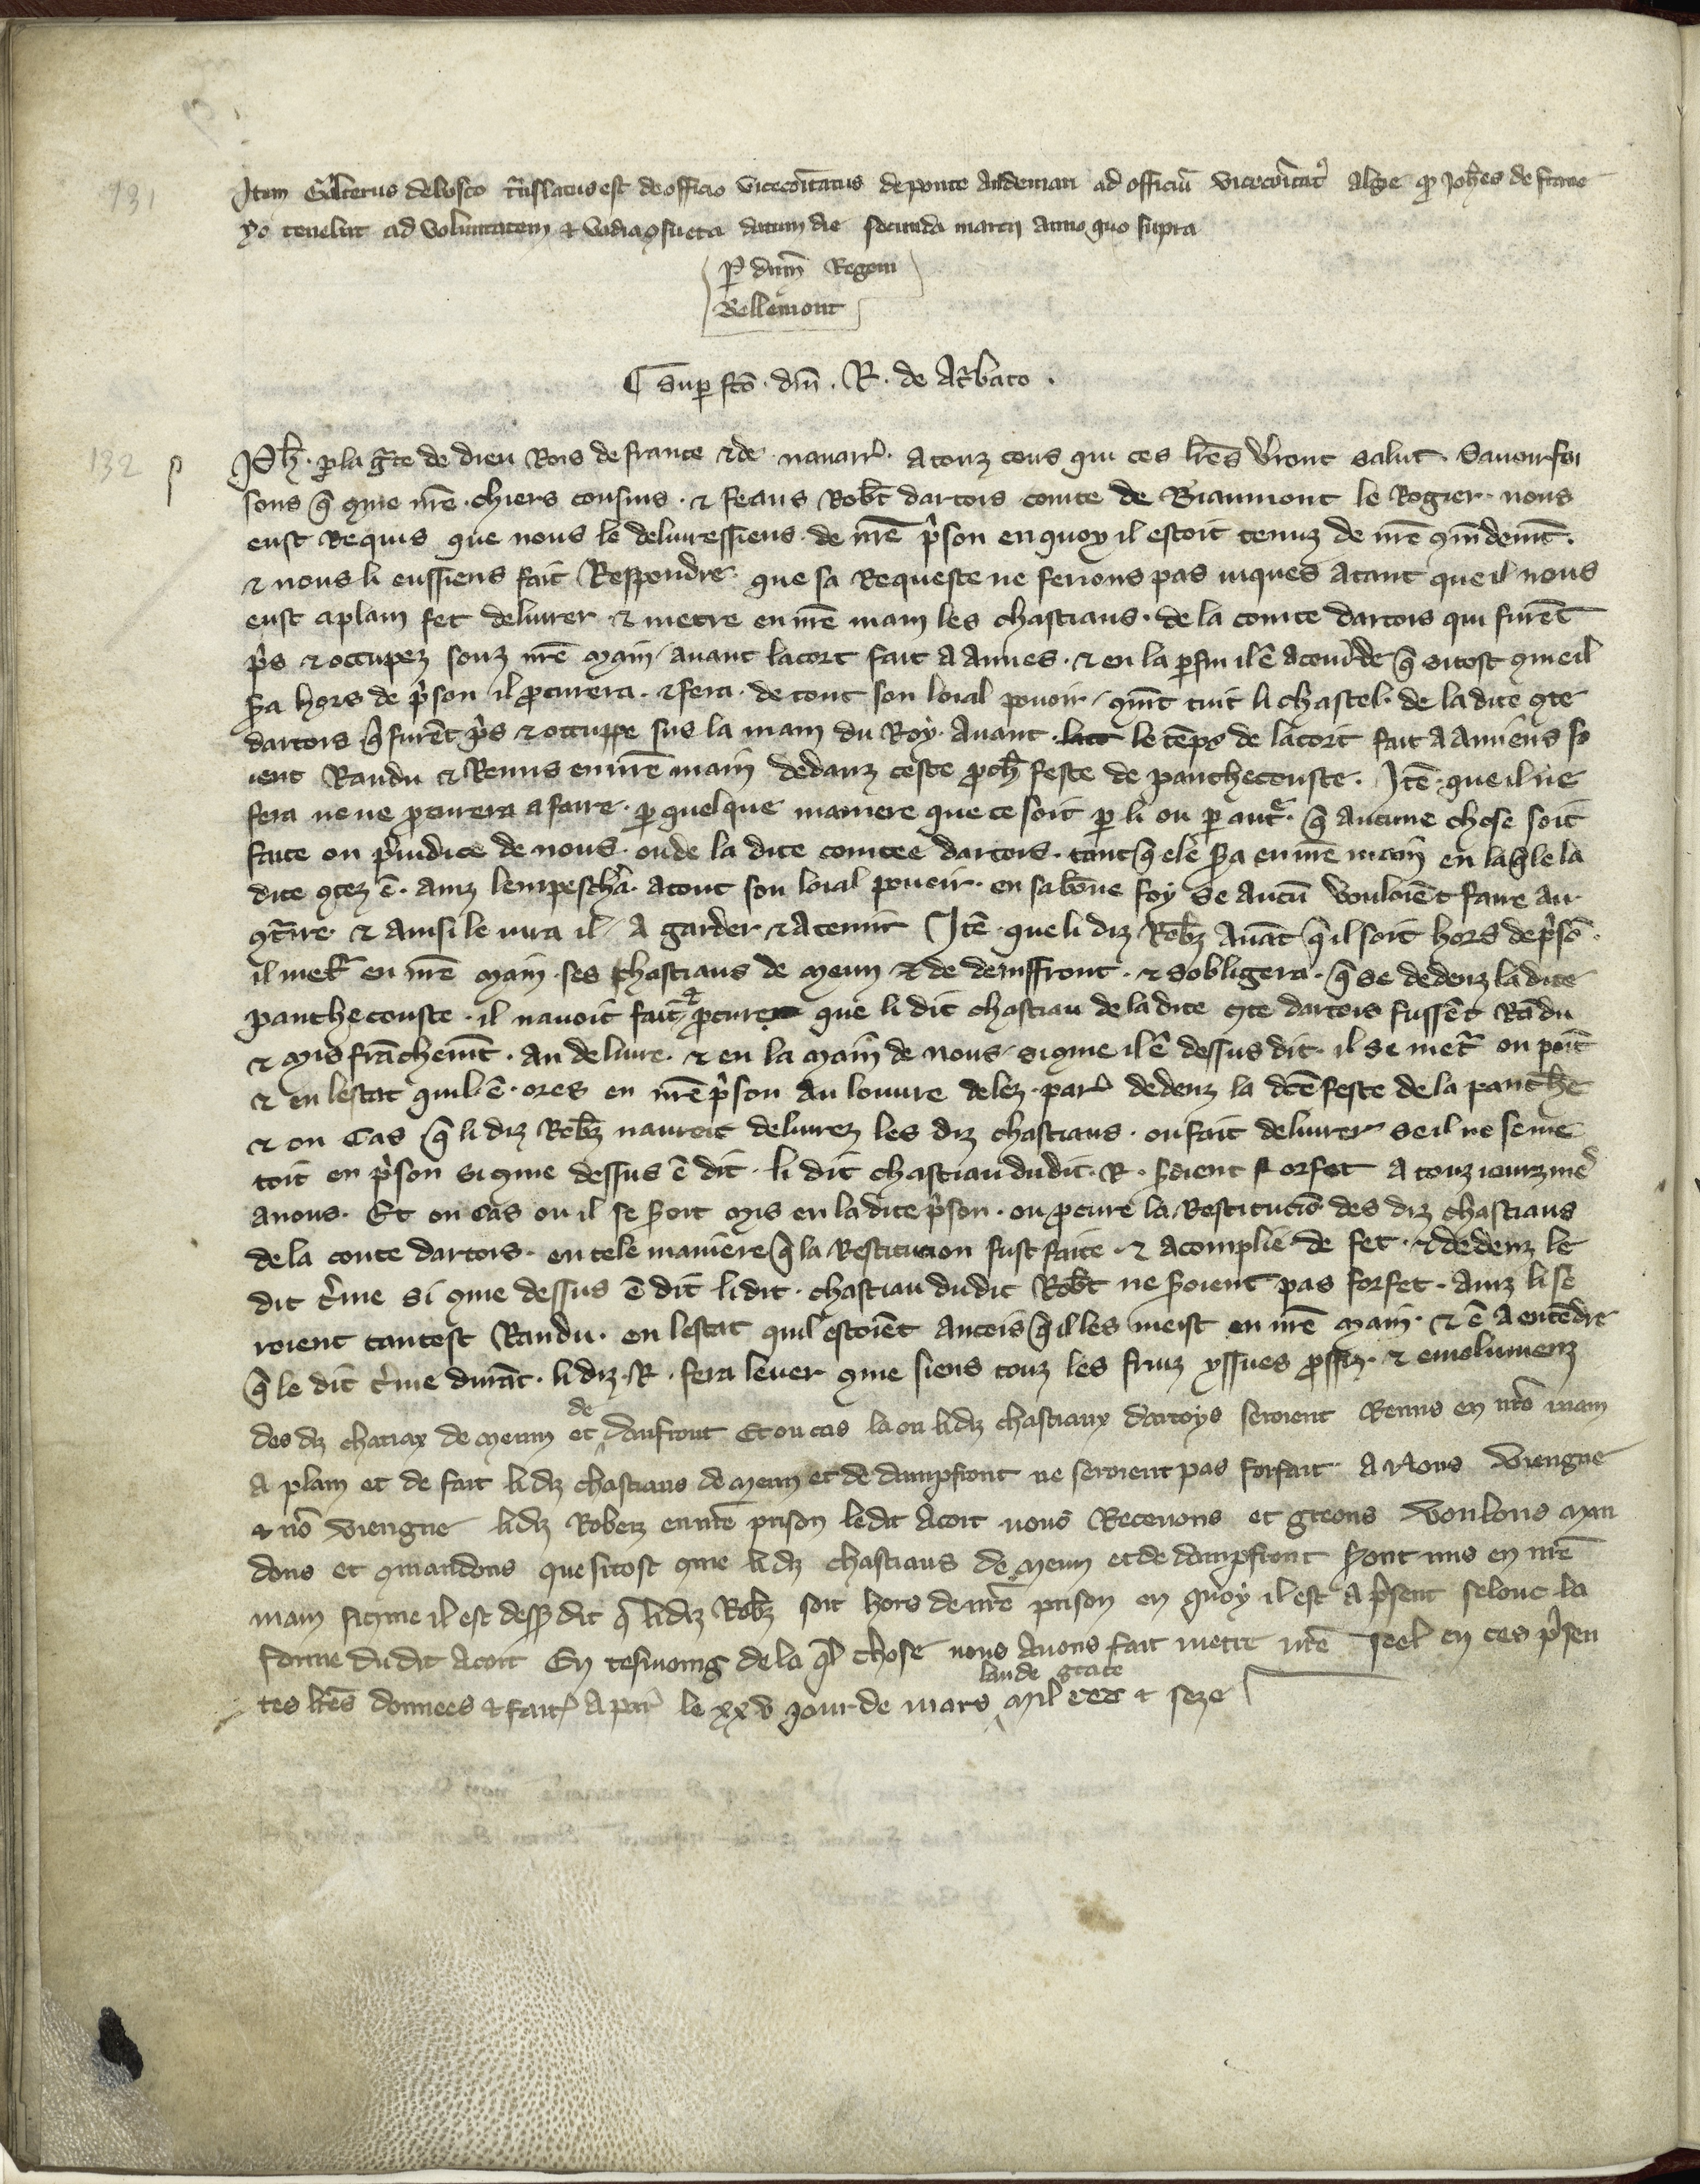 131
Item Galterus de bosco t̃nslatus est de officio vicecom̃itatus de ponte Audemari ad officiũ vicecõitatꝰ Alge qͥ Joh̃es de
tenebat ad voluntatem ⁊ vadia ꝯsueta datum die secunda marcij anno quo supra
P dñm Regem
Bellemont
¶ Sup fc̃o . dñi . R . de At̃bato .
132
Ph̃ . ꝑ la gr̃ce de dieu Rois de france ⁊ de nauarr̃ . A touz ceus qui ces lr̃es v̾ront salut . Sauoir foi
sons q̃ ꝯme nr̃e chiers cousins . ⁊ feaus Rob̃t dartois conte de Biaumont le Rogier . nous
eust Requis que nous le deliuressiens . de nr̃e pͥson en quoy il estoit tenuz de nr̃e ꝯm̃demt̃ .
⁊ nous li eussiens fait Respondre . que sa Requeste ne ferions pas iuques atant que il nous
eust a plain fet deliurer ⁊ metre en nr̃e main les chastiaus . de la conte dartois qui furẽt
pͥs ⁊ occupez souz nr̃e main auant lacort fait a Amies . ⁊ en la ꝑfin il ẽ acourde q̃ sitost ꝯme il
s̾a hors de pͥson il ꝓcurera . ⁊ fera . de tout son loial pouoir . ꝯmt̃ tuit li chastel . de la dite ꝯte
dartois q̃ furẽt pͥs ⁊ occuppe sus la main du Roy . Auant . lact le tẽps de lacort fait a Amiens so
ient Randu ⁊ Remis en nr̃e main dedanz ceste ꝓch̃ feste de pantheconste . Itẽ . que il ne
fera ne ne ꝓcurera a faire . ꝑ quelque maniere que ce soit ꝑ li ou ꝑ autͬ . q̃ aucune chose soit
faite ou pͥiudice de nous . ou de la dite contee dartois . tant q̃ ele s̾a en nr̃e main en laq̃le la
dite ꝯtez ẽ . ainz lempesch̾a . a tout son loial poueir . en sa bõne foy se aucũ vouloiẽt faire au
ꝯt̃ire . ⁊ ainsi le iura il . A garder ⁊ a tenir Itẽ . que li diz Rob̃z Auãt q̃ il soit hors de pͥsõ .
il metͬ en nr̃e main . ses chastiaus de meun ⁊ de demffront . ⁊ sobligera . q̃ se dedenz la dite
pantheconste . il nauoit fait ⁊ ꝓcure que li dit chastiau de la dite ꝯte dartois fussẽt Rãdu
⁊ mis frãchemt̃ . au deliure . ⁊ en la main de nous . si ꝯme il ẽ dessus dit . il se metͬ ou point
⁊ en lestat quil ẽ . ores en nr̃e pͥson au louure delez . par̾ dedenz la dc̃e feste de la panthe
⁊ ou cas q̃ li diz Rob̃z nauroit deliurez les diz chastiaus . ou fait deliurer se il ne se me
toit en pͥson si ꝯme dessus ẽ dit . li dit chastiau dudit . R . s̾oient forfet a touz iourz me̾
a nous . Et ou cas ou il se s̾oit mis en la dite pͥson . ou ꝓcure la Restituciõ des diz chastiaus
de la conte dartois . en tele maniere q̃ la Restitucion fust faite . ⁊ acomplie de fet . ⁊ dedenz le
dit t̾me si ꝯme dessus ẽ dit li dit . chastiau dudit Rob̃t ne s̾oient pas forfet . ainz li se
roient tantost Randu . en lestat quil estoiẽt ancois q̃ il les meist en nr̃e main . ⁊ ẽ a entẽdre
q̃ le dit t̾me durãt . li diz . R . fera leuer ꝯme siens touz les fruiz yssues ꝓffiz . ⁊ emolumenz
des diz chatiax de meum et de danfront Et ou cas la ou li diz chastiaux dartoys seroient Remis en nr̃e main
a plain et de fait li diz chastiaus de meun et de dampfront ne seroient pas forfait a nous viengne
⁊ nõ viengne li diz Roberz en nr̃e prison ledit Acort nous Receuons et greons voulons man
dons et ꝯmandons que sitost ꝯme li diz chastiaus de meun et de dampfront s̾ont mis en nr̃e
main si ꝯme il est dessꝰ dit q̃ li diz Rob̃z soit hors de nr̃e prison en quoy il est a pͥsent selonc la
forme dudit Acort En tesmoing de la q̃l chose nous Auons fait metre nr̃e seel en ces pͥsen
tes lr̃es donnees ⁊ fait̾ a par̾ le xxv jour de mars lan de grace mil ccc ⁊ seze